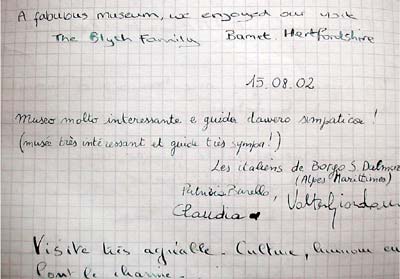 A fabulous museum, we enjoyed our visit
The Blyth Family Barnet, Hertfordshire
15.08.02
Museo molto interessante e guida davvero simpatica!
(musée très intéressant et guide très sympa!)
Les italiens de Borgo S Dalmazzo
(Alpes Marittimes)
Patrizia Barello,
Claudia
Visite très agréable. Culture, humour
sont le charme